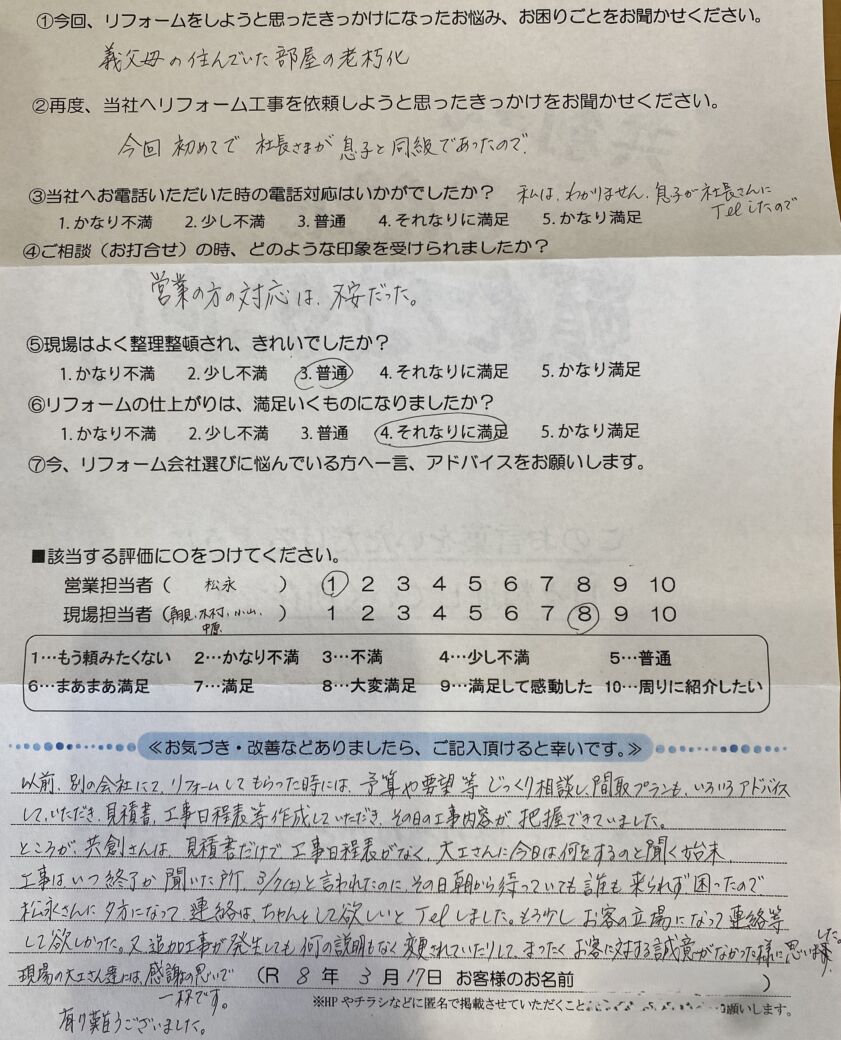 ①今回、リフォームをしようと思ったきっかけになったお悩み、お困りごとをお聞かせください。
義父母の住んでいた部屋の老朽化
②再度、当社へリフォーム工事を依頼しようと思ったきっかけをお聞かせください。
今回 初めてで 社長さまが 息子と同級であったので
③当社へお電話いただいた時の電話対応はいかがでしたか？ 私は、わかりません。息子が社長さんに
Telしたので
1.かなり不満 2.少し不満 3.普通 4.それなりに満足 5.かなり満足
④ご相談（お打合せ）の時、どのような印象を受けられましたか？
営業の方の対応は、不安だった。
⑤現場はよく整理整頓され、きれいでしたか？
1.かなり不満 2.少し不満 3.普通 4.それなりに満足 5.かなり満足
⑥リフォームの仕上がりは、満足いくものになりましたか？
1.かなり不満 2.少し不満 3.普通 4.それなりに満足 5.かなり満足
⑦今、リフォーム会社選びに悩んでいる方へ一言、アドバイスをお願いします。
■該当する評価に〇をつけてください。
営業担当者（ 松永 ） 1 2 3 4 5 6 7 8 9 10
現場担当者（ 木村、小山、 ） 1 2 3 4 5 6 7 8 9 10
中原
1…もう頼みたくない 2…かなり不満 3…不満 4…少し不満 5…普通
6…まあまあ満足 7…満足 8…大変満足 9…満足して感動した 10…周りに紹介したい
≪お気づき・改善などありましたら、ご記入頂けると幸いです。≫
以前、別の会社にて、リフォームしてもらった時には、予算や要望等じっくり相談し、間取プランも、いろいろアドバイス
して、いただき、見積書、工事日程表等作成していただき、その日の工事内容が、把握できていました。
ところが、共創さんは、見積書だけで、工事日程表がなく、大工さんに今日は何をするのと聞く始末、
工事はいつ終了か聞いた所、3/7(土)と言われたのに、その日朝から待っていても誰も来られず困ったので
松永さんに夕方になって、連絡は、ちゃんとして欲しいとTelしました。もう少しお客の立場になって連絡等
して欲しかった。又、追加工事が発生しても何の説明もなく変更されていたりして、まったくお客に対する誠意がなかった様に思いました。
現場の大工さん達には、感謝の思いで （R 8 年 3 月 17日 お客様のお名前 ）
一杯です。
※HPやチラシなどに匿名で掲載させていただくこと 願いします。
有り難うございました。